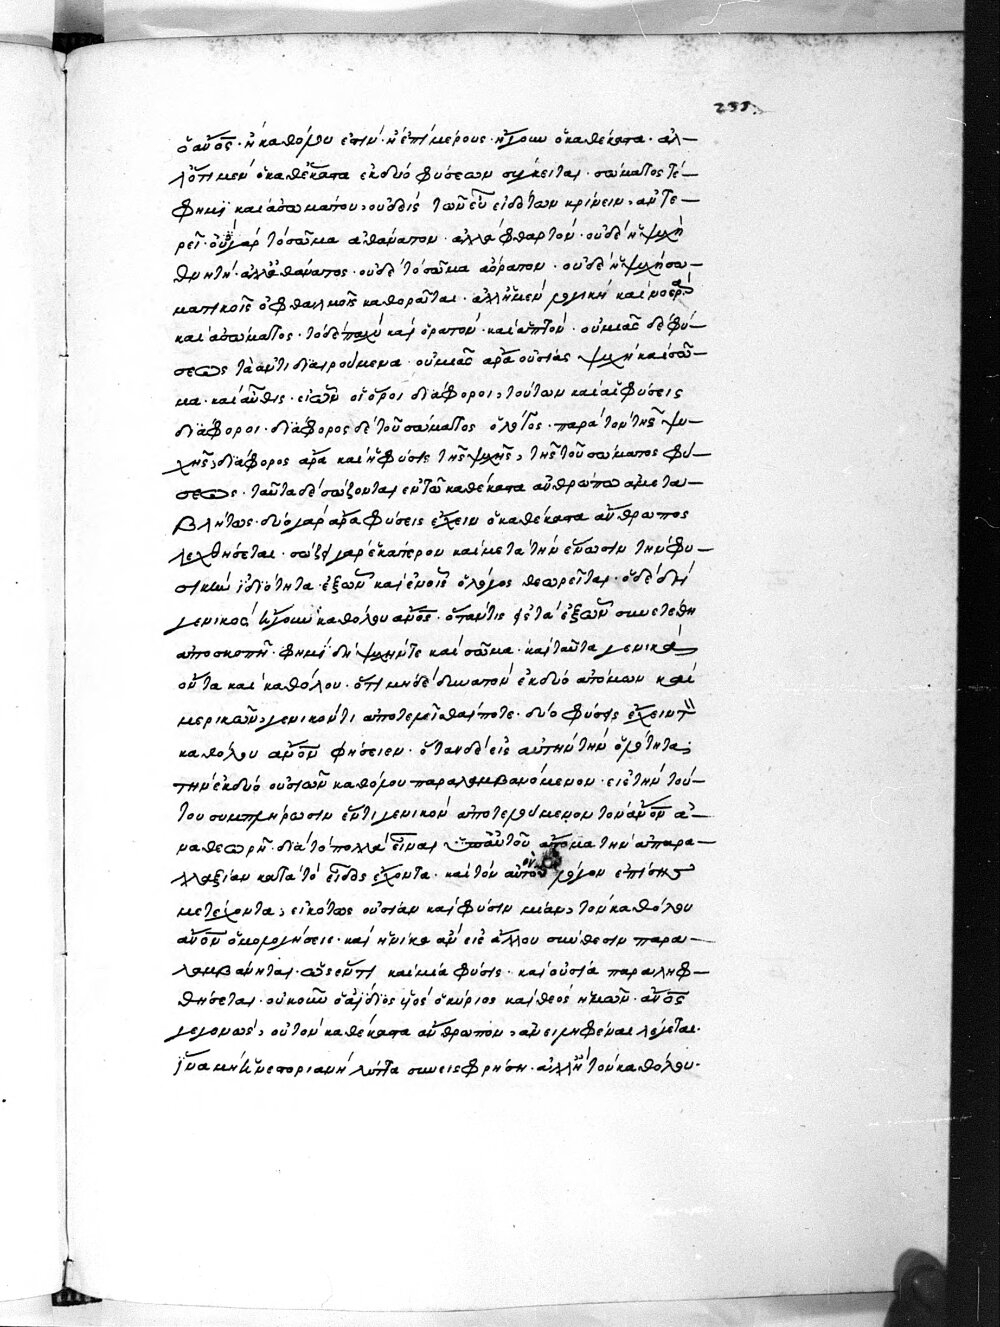 233
ὁ ἄνος· ἢ καθόλου ἐστὶν· ἢ ἐπιμέρους· ἤγουν ὁ καθέκαστα· ἀλ-
λ' ὅτι μὲν ὁ καθέκαστα ἐκ δυὸ φύσεων σύγκειται· σώματος τέ
φημὶ καὶ ἀσωμάτου, οὐδεὶς τῶν εὖ εἰδότων κρίνειν, ἀντε-
ρεῖ· οὐ γὰρ τὸ σῶμα ἀθάνατον· ἀλλὰ φθαρτόν· οὐδὲ ἡ ψυχὴ
θνητή· ἀλλ' ἀθάνατος· οὐδὲ τὸ σῶμα ἀόρατον· οὐδὲ ἡ ψυχὴ σω-
ματικοῖς ὀφθαλμοῖς καθορᾶται· ἀλλ' ἡ μὲν λογικὴ καὶ νοερὰ
καὶ ἀσώματος· τὸ δὲ παχὺ καὶ ὁρατόν· καὶ ἁπτόν· οὐ μιᾶς δὲ φύ-
σεως τὰ ἀντιδιαιρούμενα· οὐ μιᾶς ἄρα οὐσίας ψυχὴ καὶ σῶ-
μα· καὶ αὖθις· εἰ ὧν οἱ ὅροι διάφοροι, τούτων καὶ αἱ φύσεις
διάφοροι· διάφορος δὲ τοῦ σώματος ὁ λόγος· παρὰ τὸν τῆς ψυ-
χῆς, διάφορος ἄρα καὶ ἡ φύσις τῆς ψυχῆς, τῆς τοῦ σώματος φύ-
σεως· ταῦτα δὲ σώζονται ἐν τῶ καθέκαστα ἀνθρώπω ἀμετα-
βλήτως· δυὸ γὰρ ἄρα φύσεις ἔχειν ὁ καθέκαστα ἄνθρωπος
λεχθήσεται· σώζει γὰρ ἑκάτερον καὶ μετὰ τὴν ἕνωσιν τὴν φυ-
σικὴν ἰδιότητα· ἐξ ὧν καὶ ἐν οἷς ὁ λόγος θεωρεῖται· ὁ δέ δὴ
γενικὸς ἤγουν καθόλου ἄνος· ὅταν τις εἰς τὰ ἐξ ὧν συνετέθη
ἀποσκοπῆ· φημὶ δὴ ψυχήν τε καὶ σῶμα· καὶ ταῦτα γενικὰ
ὄντα καὶ καθόλου· ὅτι μηδὲ δυνατὸν ἐκ δυὸ ἀτόμων καὶ
μερικῶν, γενικόν τι ἀποτελεῖσθαι ποτε· δύο φύσεις ἔχειν τὸν
καθόλου ἄνον φήσειεν· ὅταν δὲ εἰς αὐτὴν τὴν ὁλότητα,
τὴν ἐκ δυὸ οὐσιῶν καθόλου παραλαμβανόμενον· εἰς τὴν τού-
του συμπλήρωσιν ἕν τι γενικὸν ἀποτελούμενον τὸν ἄνον ἀ-
ναθεωρῆ· διὰ τὸ πολλὰ εἶναι ὑπ' αὐτοῦ ἄτομα τὴν ἀπαρα-
λλαξίαν κατὰ τὸ εἶδος ἔχοντα· καὶ τὸν αὐτὸν λόγον ἐπίσης
μετέχοντα, εἰκότως οὐσίαν καὶ φύσιν μίαν, τὸν καθόλου
ἄνον ὁμολογήσει· καὶ ἡνίκα ἂν εἰς ἄλλου σύνθεσιν παρα-
λαμβάνηται· ὡς ἕν τι καὶ μία φύσις· καὶ οὐσία παραληφ-
θήσεται· οὐκοῦν ὁ ἀΐδιος υἱὸς ὁ κύριος καὶ θεὸς ἡμῶν· ἄνος
γεγονὼς, οὐ τὸν καθέκαστα ἄνθρωπον, ἀνειληφέναι λέγεται·
ἵνα μὴ ἡ νεστοριανὴ λύττα συνεισφρήση· ἀλλ' ἢ τὸν καθόλου·